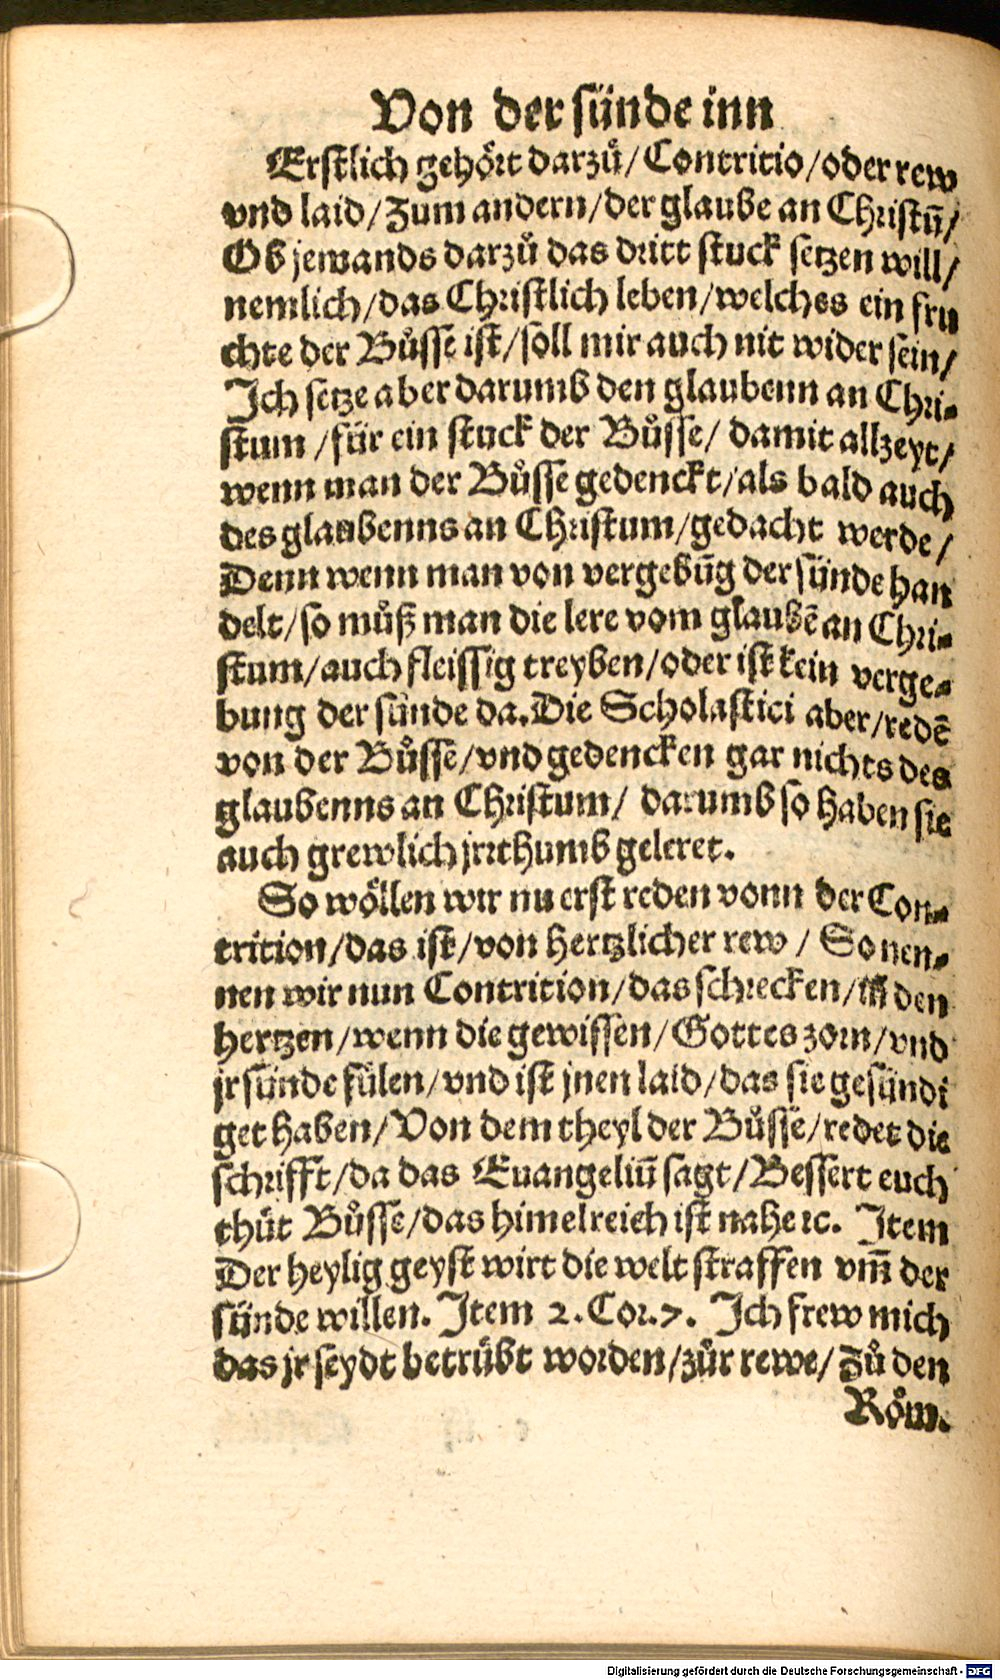 Von der sünde inn
Erstlich gehört darzů/ Contritio/oder rew
vnd laid/Zum andern/der glaube an Christū/
Ob jewands darzů das dritt stuck setzen will/
nemlich/das Christlich leben/welches ein fru
chte der Bůsse ist/soll mir auch nit wider sein/
Ich setze aber darumb den glaubenn an Chri⸗
stum /für ein stuck der Bůsse/ damit allzeyt/
wenn man der Bůsse gedenckt/als bald auch
des glaubenns an Christum/gedacht werde/
Denn wenn man von vergebūg der sünde han
delt/so můß man die lere vom glaubē an Chri⸗
stum/auch fleissig treyben/oder ist kein verge⸗
bung der sünde da.Die Scholastici aber/redē
von der Bůsse/vnd gedencken gar nichts des
glaubenns an Christum/ darumb so haben sie
auch grewlich jrrthumb geleret.
So wöllen wir nu erst reden vonn der Con⸗
trition/das ist/von hertzlicher rew / So nen⸗
nen wir nun Contrition/das schrecken/in den
hertzen/wenn die gewissen/Gottes zorn/vnd
jr sünde fülen/vnd ist jnen laid/das sie gesündi
get haben/Von dem theyl der Bůsse/redet die
schrifft/da das Euangeliū sagt/Bessert euch
thüt Bůsse/das himelreich ist nahe ꝛc. Item
Der heylig geyst wirt die welt straffen vm̄ der
sünde willen. Item 2.Cor.7. Ich frew mich
das jr seydt betrübt worden/zůr rewe/ Zů den
Röm.
Digitalisierung gefördert durch die Deutsche Forschungsgemeinschaft - DFG